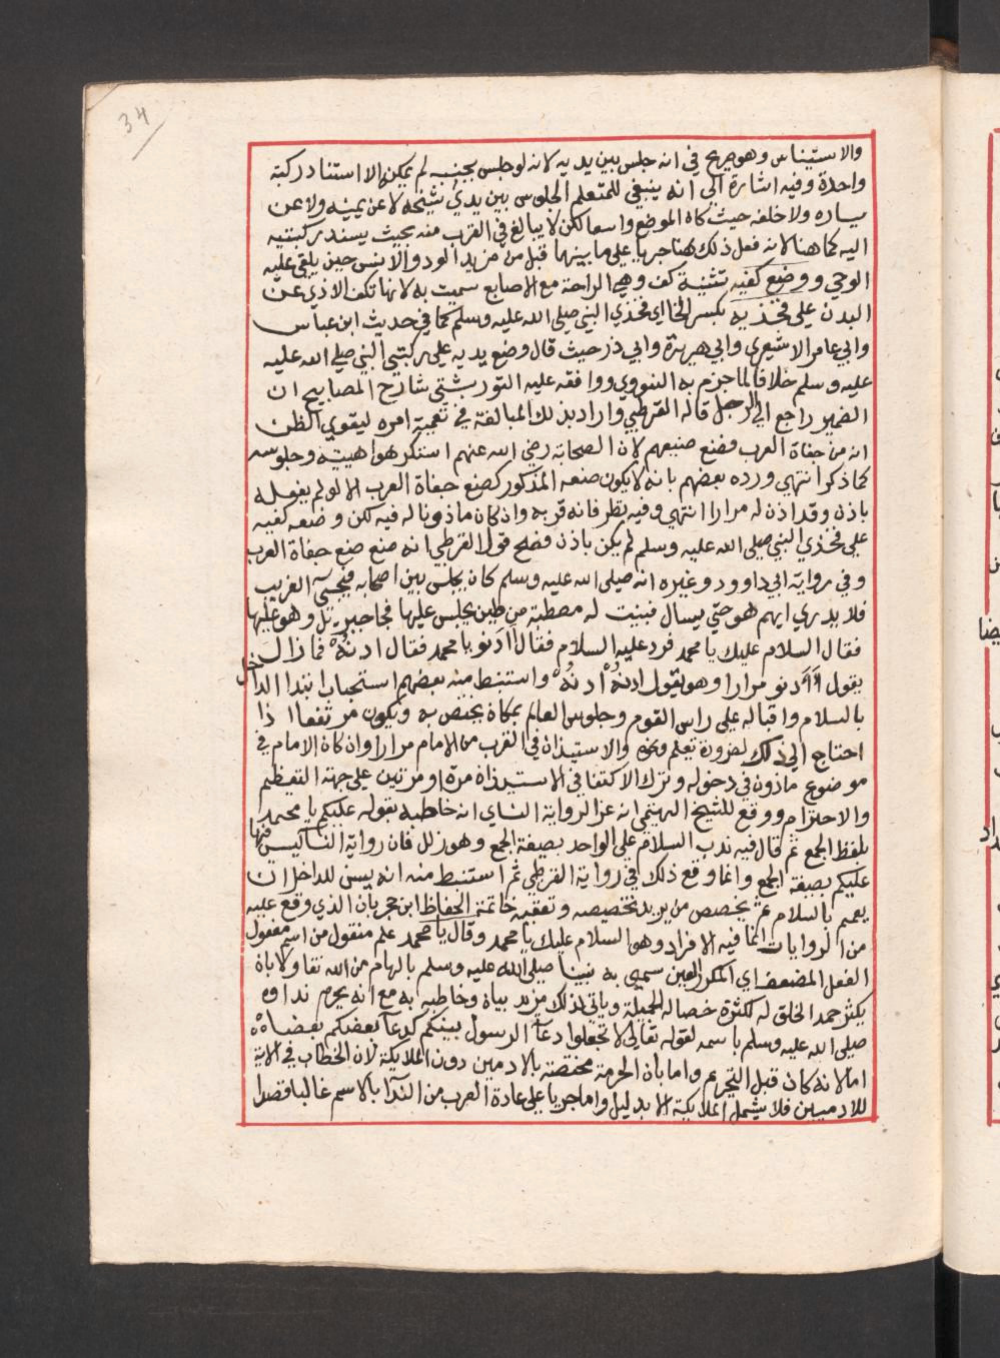 34
والاستيناس وهو صريح في انه جلس بين يديه لانه لو جلس بجنبه لم يمكن الا استناد ركبة
واحدة وفيه اشارة الي انه ينبغي للمتعلم الجلوس بين يدي شيخه لا عن يمينه ولا عن
يساره ولا خلفه حيث كان الموضع واسعا لكن لا يبالغ في القرب منه بحيث يسند ركبتيه
اليه كما هنا لانه فعل ذلك هنا جريا علي ما بينهما قبل من مزيد الود والانس حين يلقي عليه
الوحي ووضع كفيه تثنية كف وهي الراحة مع الاصابع سميت به لانها تكف الاذي عن
البدن علي فخذيه بكسر الخا اي فخذي النبي صلي الله عليه وسلم كما في حديث ابن عباس
وابي عامر الاشعري وابي هريرة وابي ذر حيث قال وضع يديه علي ركبتي النبي صلي الله عليه
عليه وسلم خلافا لما جزم به النووي ووافقه عليه التوربشتي شارح المصابيح ان
الضمير راجع الي الرجل قاله القرطبي واراد بذلك المبالغة في تعمية امره ليقوي الظن
انه من جفاة العرب فصنع صنيعهم لان الصحابة رضي الله عنهم استنكروا هيئته وجلوسه
كما ذكر انتهي ورده بعضهم بانه لا يكون صنعه المذكور كصنع جفاة العرب الا لو لم يفعله
باذن وقد اذن له مرارا انتهي وفيه نظر فانه قربه وان كان ماذونا له فيه لكن وضعه كفيه
علي فخذي النبي صلي الله عليه وسلم لم يكن باذن فصح قول القرطبي انه صنع صنع جفاة العرب
وفي رواية ابي داوود وغيره انه صلي الله عليه وسلم كان يجلس بين اصحابه فيجيء الغريب
فلا يدري ايهم هو حتي يسال فبنيت له مصطبة من طين يجلس عليها فجا جبريل وهو عليها
فقال السلام عليك يا محمد فرد عليه السلام فقال أادنو يا محمد فقال ادنه فما زال
يقول أادنو مرارا وهو يقول ادنه ادنه واستنبط منه بعضهم استحباب ابتدا الداخل
بالسلام واقباله علي راس القوم وجلوس العالم بمكان يختص به ويكون مرتفعا اذا
احتاج الي ذلك لضرورة تعلم ونحوه والاستيذان في القرب من الامام مرارا وان كان الامام في
موضوع ماذون في دخوله وترك الاكتفا في الاستيذان مرة او مرتين علي جهة التعظيم
والاحترام ووقع للشيخ الهيتمي انه عزا لرواية النساي انه خاطبه بقوله عليكم يا محمد
بلفظ الجمع ثم قال فيه ندب السلام علي الواحد بصيغة الجمع وهو زلل فان رواية النساي ليس فيها
عليكم بصيغة الجمع وانما وقع ذلك في رواية القرطبي ثم استنبط منه انه يسن للداخل ان
يعمم بالسلام ثم يخصص من يريد تخصيصه وتعقبه خاتمة الحفاظ ابن حجر بان الذي وقع عليه
من الروايات انما فيه الافراد وهو السلام عليك يا محمد وقال يا محمد علم منقول من اسم مفعول
الفعل المضعف اي المكرر العين سمي به نبينا صلي الله عليه وسلم بالهام من الله تفاولا بان
يكثر حمد الخلق له لكثرة خصاله الجميلة وياتي لذلك مزيد بيان وخاطبه به مع انه يحرم نداوه
صلي الله عليه وسلم باسمه لقوله تعالي لا تجعلوا دعاء الرسول بينكم كدعاء بعضكم بعضا
اما لانه كان قبل التحريم واما بان الحرمة مختصة بالادمين دون الملايكة لان الخطاب في الاية
للادميين فلا يشمل الملايكة الا بدليل واما جريا علي عادة العرب من الندآ بالاسم غالبا فقصدا